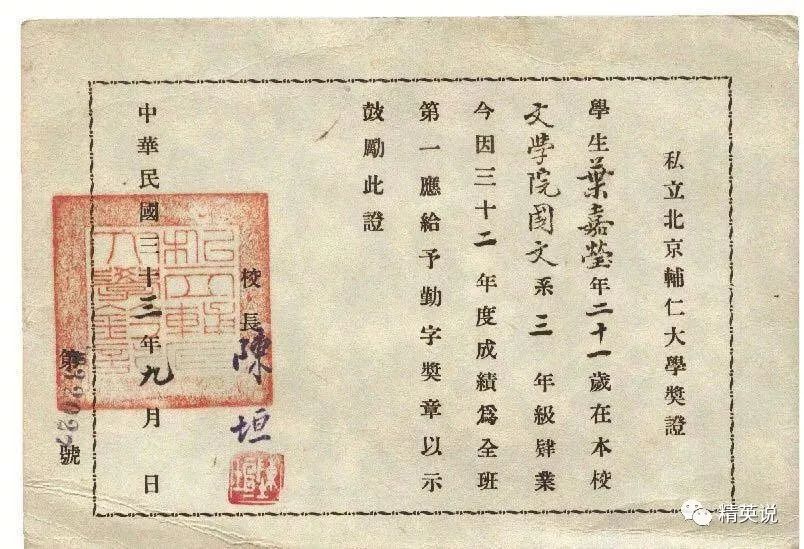 私立北京輔仁大學奬證
學生葉嘉瑩年二十一歲在本校
文學院國文系三年級肄業
今因三十二年度成績爲全班
第一應給予勤字奬章以示
鼓勵此證
校長陳垣
陳垣
中華民國三十三年九月日
第號
精英说